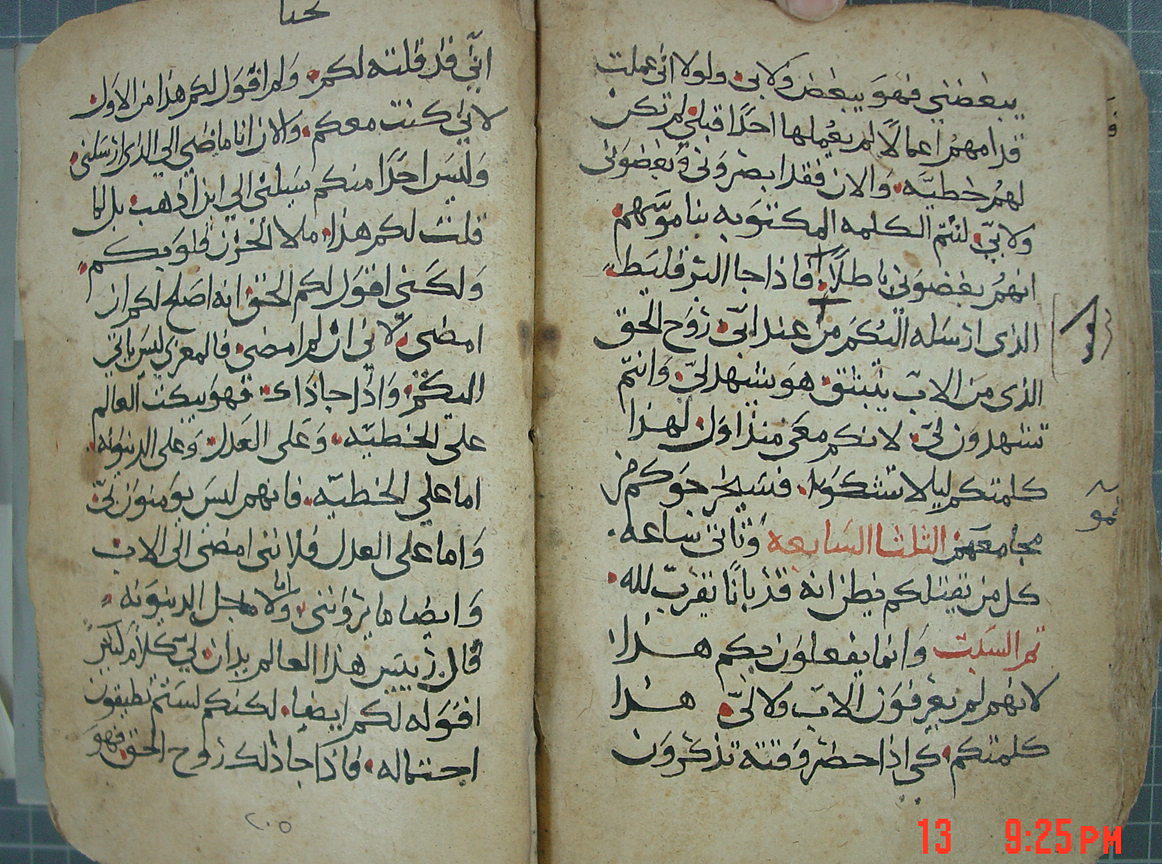 يبغضني فهو يبغض ولابي ولولا اني عملت
قدامهم اعمالًا لم يعملها احدًا قبلي لم تكن
لهم خطيّه والان فقد ابصروني وبغضوني
ولابيّ لتتم الكلمه المكتوبه بناموسهم
انهم بغضوني باطلًا فاذا جا البرقليط
الذي ارسله اليكم من عند ابيّ روح الحق
الذي من الاب ينبثق هو يشهد ليّ وانتم
تشهدون ليّ لانكم معي منذ اول لهذا
كلمتكم ليلا تشكوا فسيخرجوكم من
مجامعهم الثلثا السابعه وتاتي ساعه
كل من يقتلكم يظن انه قربانًا يقرب لله
تم السبت وانما يفعلون بكم هذا
لانهم لم يعرفون الاب ولا ليّ هذا
كلمتكم كي اذا حضر وقته تذكرون
يحنا
انّي قد قلته لكم ولم اقول لكم هذا من الاول
لاني كنت معكم والان انا ماضي الي الذي ارسلني
وليس احدًا منكم يسلني الي اين اذهب بل لما
قلت لكم هذا ملا الحزن قلوبكم
ولكني اقول لكم الحق انه اصلح لكم ان
امضي لاني ان لم امضي فالمعزي ليس ياتي
اليكم واذا جا ذاك فهو يبكت العالم
علي الخطيّه وعلي العدل وعلي الدينونه
اما علي الخطيّه فانهم ليس يومنون بيّ
واما علي العدل فلانني امضي الي الاب
وايضا ما تروانني واما من اجل الدينونه
فان رييس هذا العالم يدان لي كلام كثير
اقوله لكم ايضا لكنكم لستم تطيقون
احتماله فاذا جا ذلك روح الحق فهو
٢٠٥
13 9:25PM